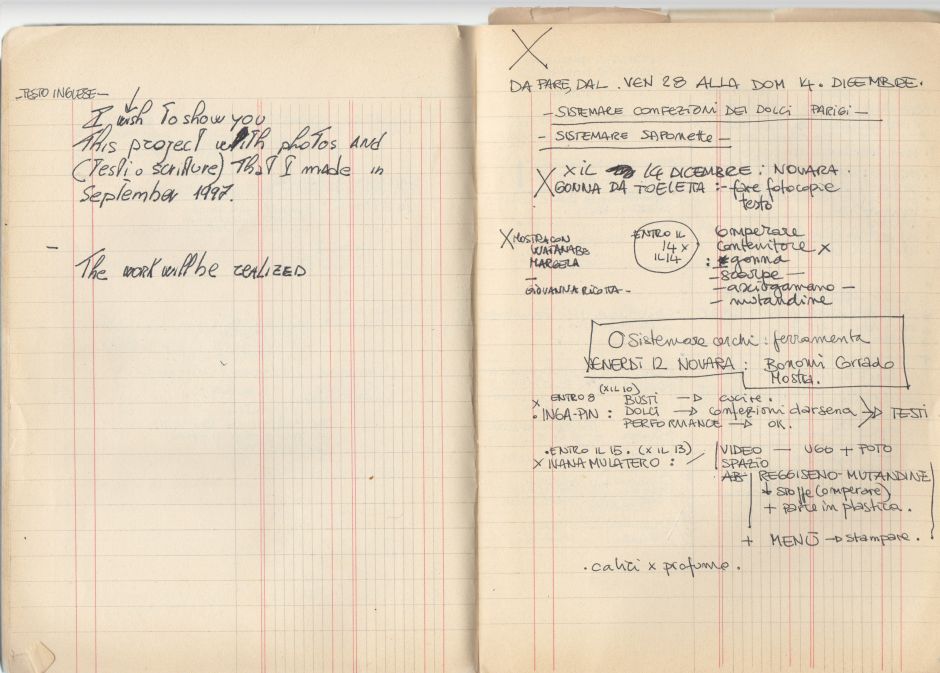 TESTO INGLESE
I wish to show you
This project with photos and
(Testi o scritture) That I made in
September 1997.
The work will be realized
X
DA FARE, DAL . VEN 28 ALLA DOM 14. DICEMBRE.
- SISTEMARE CONFEZIONI DEI DOLCI PARIGI -
- SISTEMARE SAPONETTE -
X X IL 14 DICEMBRE : NOVARA.
GONNA DA TOELETTA :- fare fotocopie
testo
X MOSTRA CON
WATANABE
MARGELA
-
GIOVANNA RICOTTA -
ENTRO IL
14 X
IL 14 :
comperare
contenitore x
gonna
- scarpe -
- asciugamano -
- mutandine
O Sistemare cerchi : ferramenta
VENERDÌ 12 NOVARA : Bonomi Corrado
Mostra.
X ENTRO 8 (X IL 10)
. INGA-PIN :
BUSTI → cucire.
DOLCI → confezioni darsena → TESTI
PERFORMANCE → OK.
. ENTRO IL 15. (X IL 13)
X IVANA MULATERO : /
VIDEO - UGO + FOTO
SPAZIO
AB- REGGISENO-MUTANDINE
↓ stoffe (comperare)
+ parte in plastica.
+ MENÙ → stampare.
. calici x profumo.